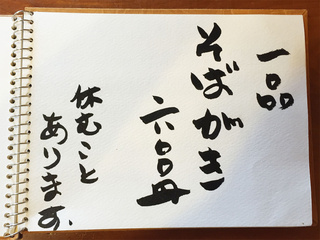 一品
そばがき
六〇〇円
休むこと
あります、